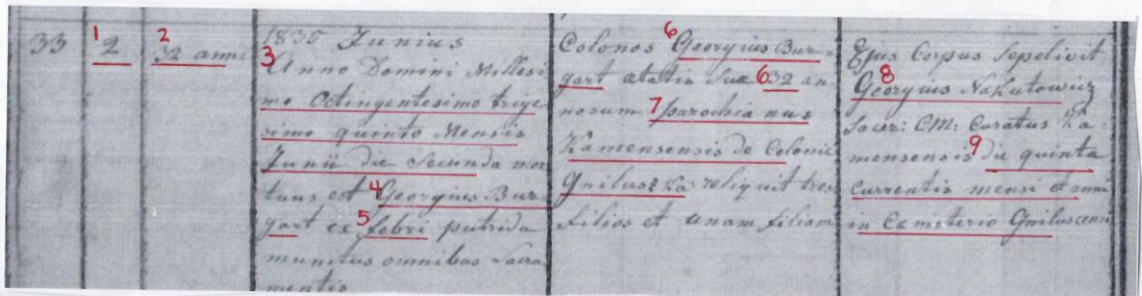 33
1
2
2
32 anni
1835 Junius
3
Anno Domini Millesi
mo Octingentesimo trige
simo quinto Mensis
Junii die Secunda mor
tuus est 4 Georgius Bur
gart ex 5 febri putrida
munitus omnibus Sacra
mentis
Colonos 6 Georgius Bur-
gart ætatis suæ 6 32 an
norum 7 parochia nus
Kamensensis de Colonie
Gniluszka reliquit tres
filios et unam filiam
Ejus Corpus Sepelivit
8
Georgius Nakutowicz
Sacer: CM: Curatus Ka
mensensis 9 die quinta
currentis mensi et anni
in Cæmiterio Gniluscensi